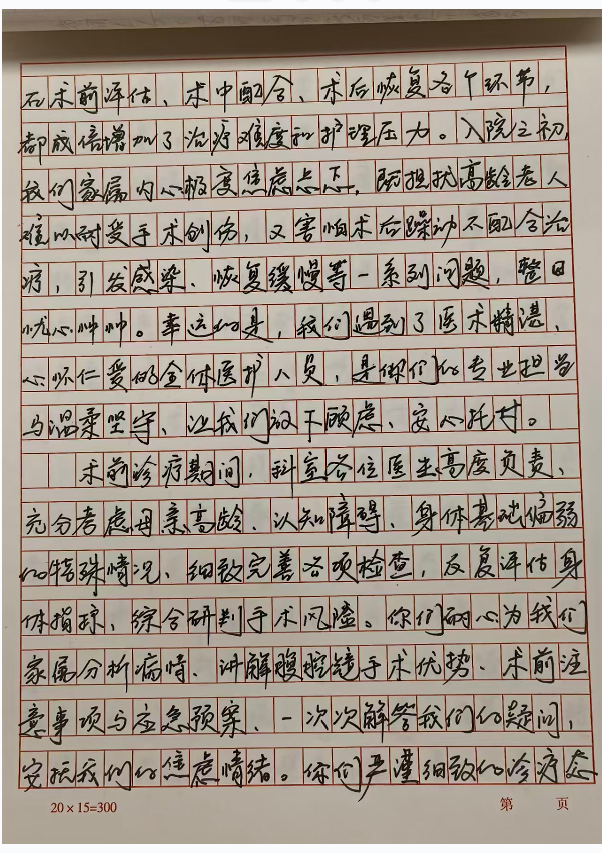 在术前评估、术中配合、术后恢复各个环节，
都成倍增加了治疗难度和护理压力。入院之初，
我们家属内心极度焦虑忐忑，既担忧高龄老人
难以耐受手术创伤，又害怕术后躁动不配合治
疗，引发感染、恢复缓慢等一系列问题，整日
忧心忡忡。幸运的是，我们遇到了医术精湛、
心怀仁爱的全体医护人员，是你们的专业担当
与温柔坚守，让我们放下顾虑、安心托付。
术前诊疗期间，科室各位医生高度负责、
充分考虑母亲高龄、认知障碍、身体基础偏弱
的特殊情况，细致完善各项检查，反复评估身
体指标，综合研判手术风险。你们耐心为我们
家属分析病情、讲解腹腔镜手术优势、术前注
意事项与应急预案，一次次解答我们的疑问，
安抚我们的焦虑情绪。你们严谨细致的诊疗态
20×15=300
第 页